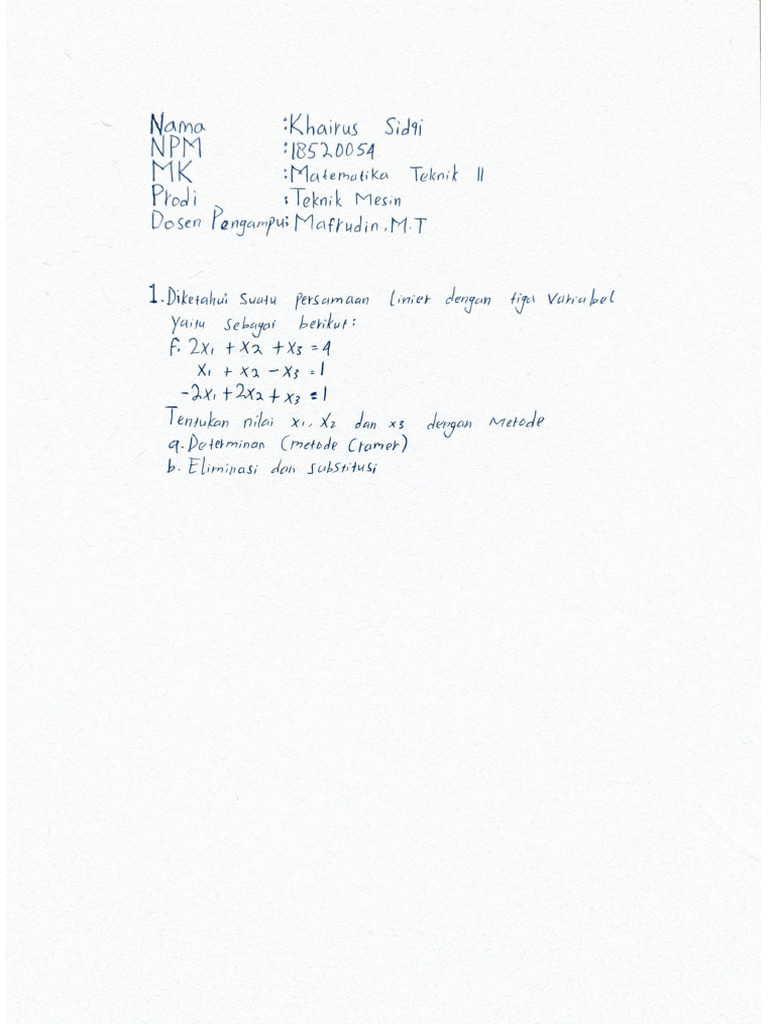 Nama :Khairus Sidqi
NPM :18520054
MK :Matematika Teknik II
Prodi :Teknik Mesin
Dosen Pengampu: Mafrudin, M.T
1. Diketahui suatu persamaan linier dengan tiga variabel
yaitu sebagai berikut:
f. 2x₁ + x₂ + x₃ = 4
x₁ + x₂ - x₃ = 1
-2x₁ + 2x₂ + x₃ = 1
Tentukan nilai x₁, x₂ dan x₃ dengan Metode
a. Determinan (metode Cramer)
b. Eliminasi dan substitusi